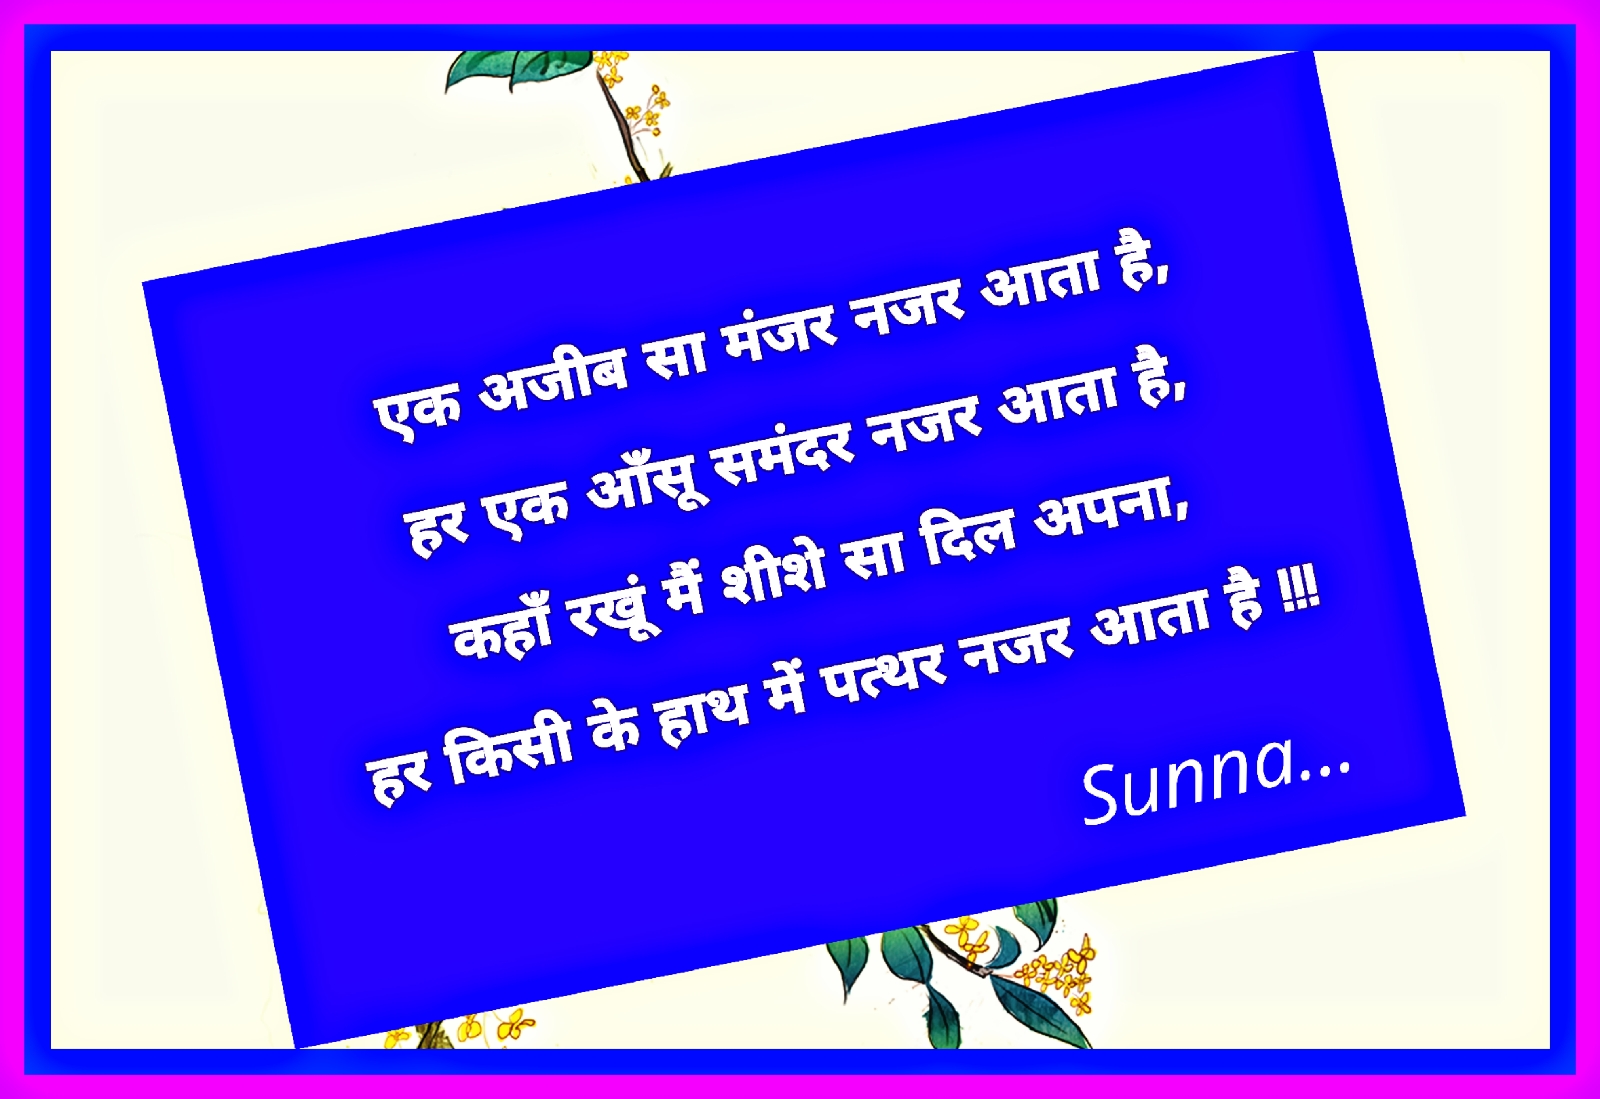 एक अजीब सा मंजर नजर आता है,
हर एक आँसू समंदर नजर आता है,
कहाँ रखूं मैं शीशे सा दिल अपना,
हर किसी के हाथ में पत्थर नजर आता है !!!
Sunna...